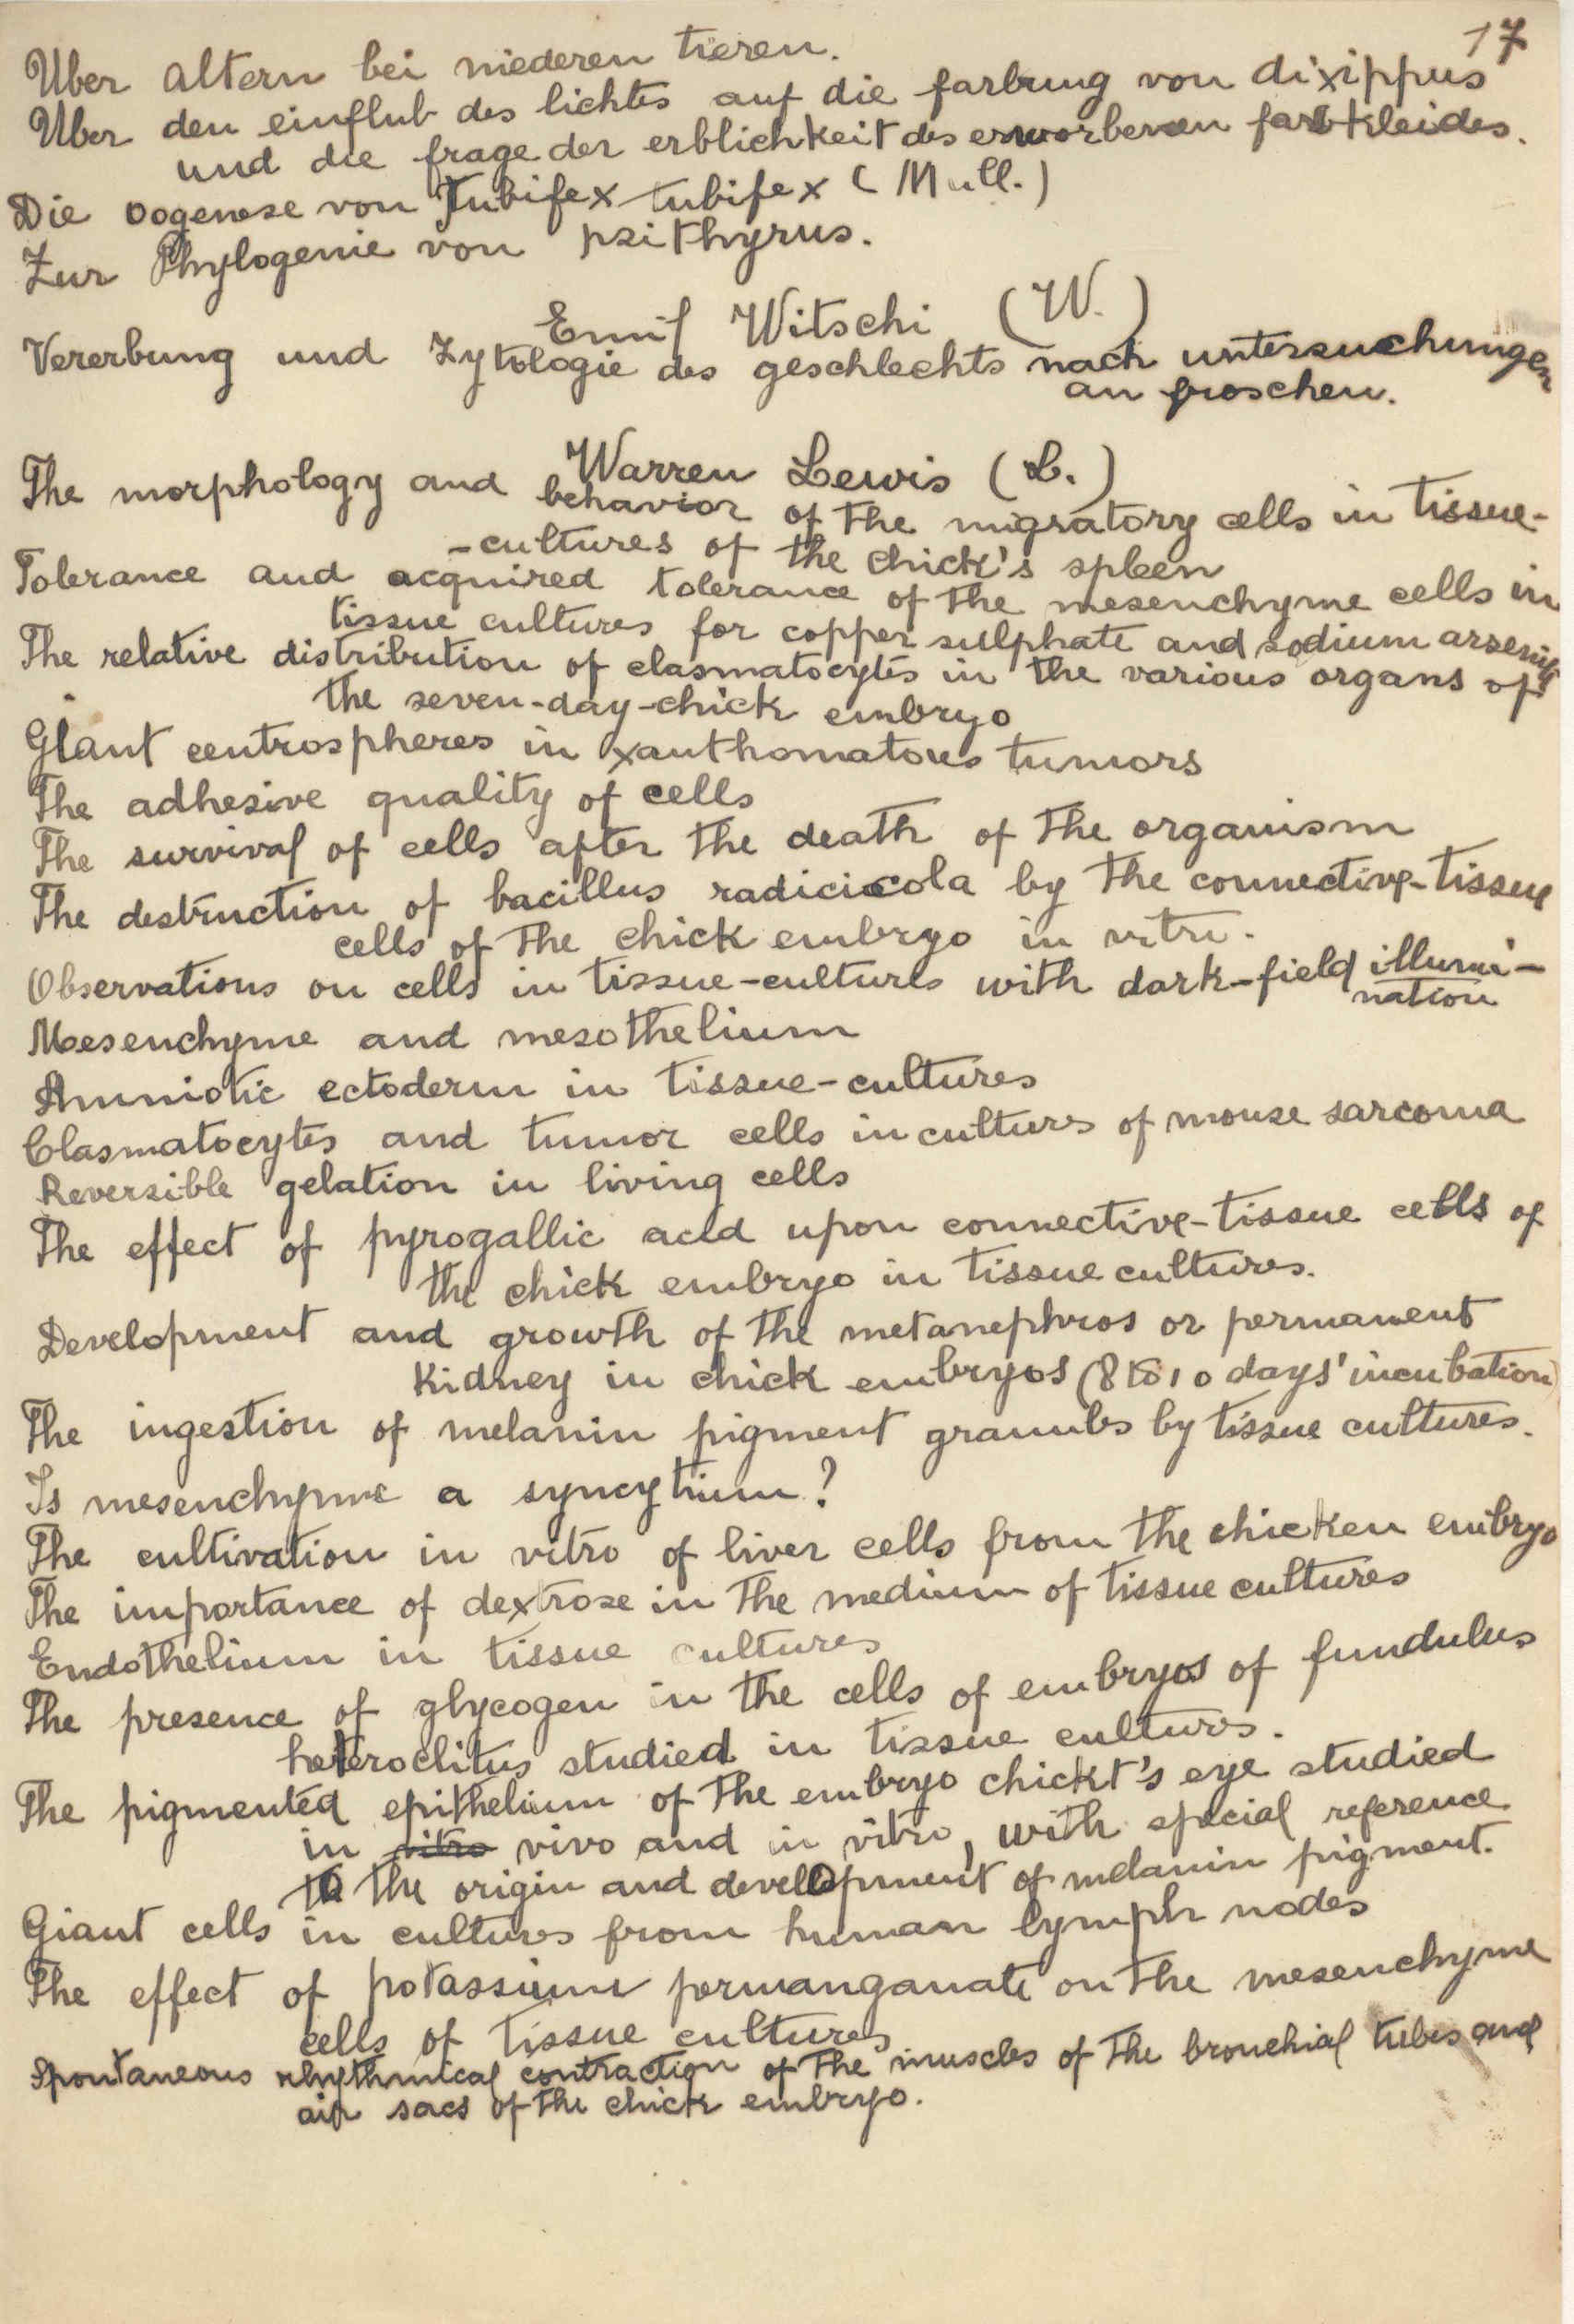 17
Uber altern bei niederen tieren.
Uber den einflub des lichtes auf die farbung von dixippus
und die frage der erblichkeit des erworbenen farbkleides.
Die oogenese von Tubifex tubifex (Mull.)
Zur Phylogenie von psithyrus.
Emil Witschi (W.)
Vererbung und zytologie des geschlechts nach untersuchungen
an froschen.
Warren Lewis (L.)
The morphology and behavior of the migratory cells in tissue-
-cultures of the chick's spleen
Tolerance and acquired tolerance of the mesenchyme cells in
tissue cultures for copper sulphate and sodium
The relative distribution of clasmatocytes in the various organs of
the seven-day-chick embryo
Giant centrospheres in xanthomatous tumors
The adhesive quality of cells
The survival of cells after the death of the organism
The destruction of bacillus radicicola by the connective-tissue
cells of the chick embryo in vitro.
Observations on cells in tissue-cultures with dark-field illumi-
nation
Mesenchyme and mesothelium
Amniotic ectoderm in tissue-cultures
Clasmatocytes and tumor cells in cultures of mouse sarcoma
Reversible gelation in living cells
The effect of pyrogallic acid upon connective-tissue cells of
the chick embryo in tissue cultures.
Development and growth of the metanephros or permanent
kidney in chick embryos (8 to 10 days' incubation)
The ingestion of melanin pigment granules by tissue cultures.
Is mesenchyme a syncytium?
The cultivation in vitro of liver cells from the chicken embryo
The importance of dextrose in the medium of tissue cultures
Endothelium in tissue cultures
The presence of glycogen in the cells of embryos of fundulus
heteroclitus studied in tissue cultures.
The pigmented epithelium of the embryo chickt's eye studied
in vitro vivo and in vitro, with special reference
to the origin and development of melanin pigment.
Giant cells in cultures from human lymph nodes
The effect of potassium permanganate on the mesenchyme
cells of tissue cultures
Spontaneous rhythmical contraction of the muscles of the bronchial tubes and
air sacs of the chick embryo.